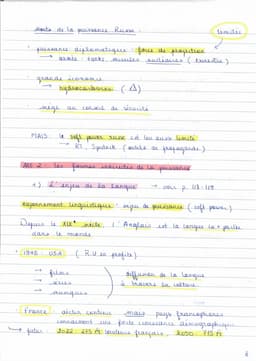 de la puissance Russe
limites
• puissance diplomatique : force de projection
→ missiles nucléaires (
• grande
→ hydrocarbures (△)
siège au conseil de sécurité
MAIS : le soft power russe est lui aussi limité
→ RT, Sputnik ( de propagande)
AXE 2 : les formes indirectes de la puissance
1) L'enjeu de la langue → voir p. 118-119
Rayonnement linguistique : enjeu de puissance (soft power)
Depuis le XXe siècle, l'Anglais est la langue la + parlée
dans le monde
• 1945 : USA (R.U en profite)
→ films
→ séries
→ musiques
diffusion de la langue
à travers la culture
France : déclin continu mais pays francophones
connaissent une forte croissance démographique
→ futur : 2022 : 275 M locuteurs français, 2050 : 715 M